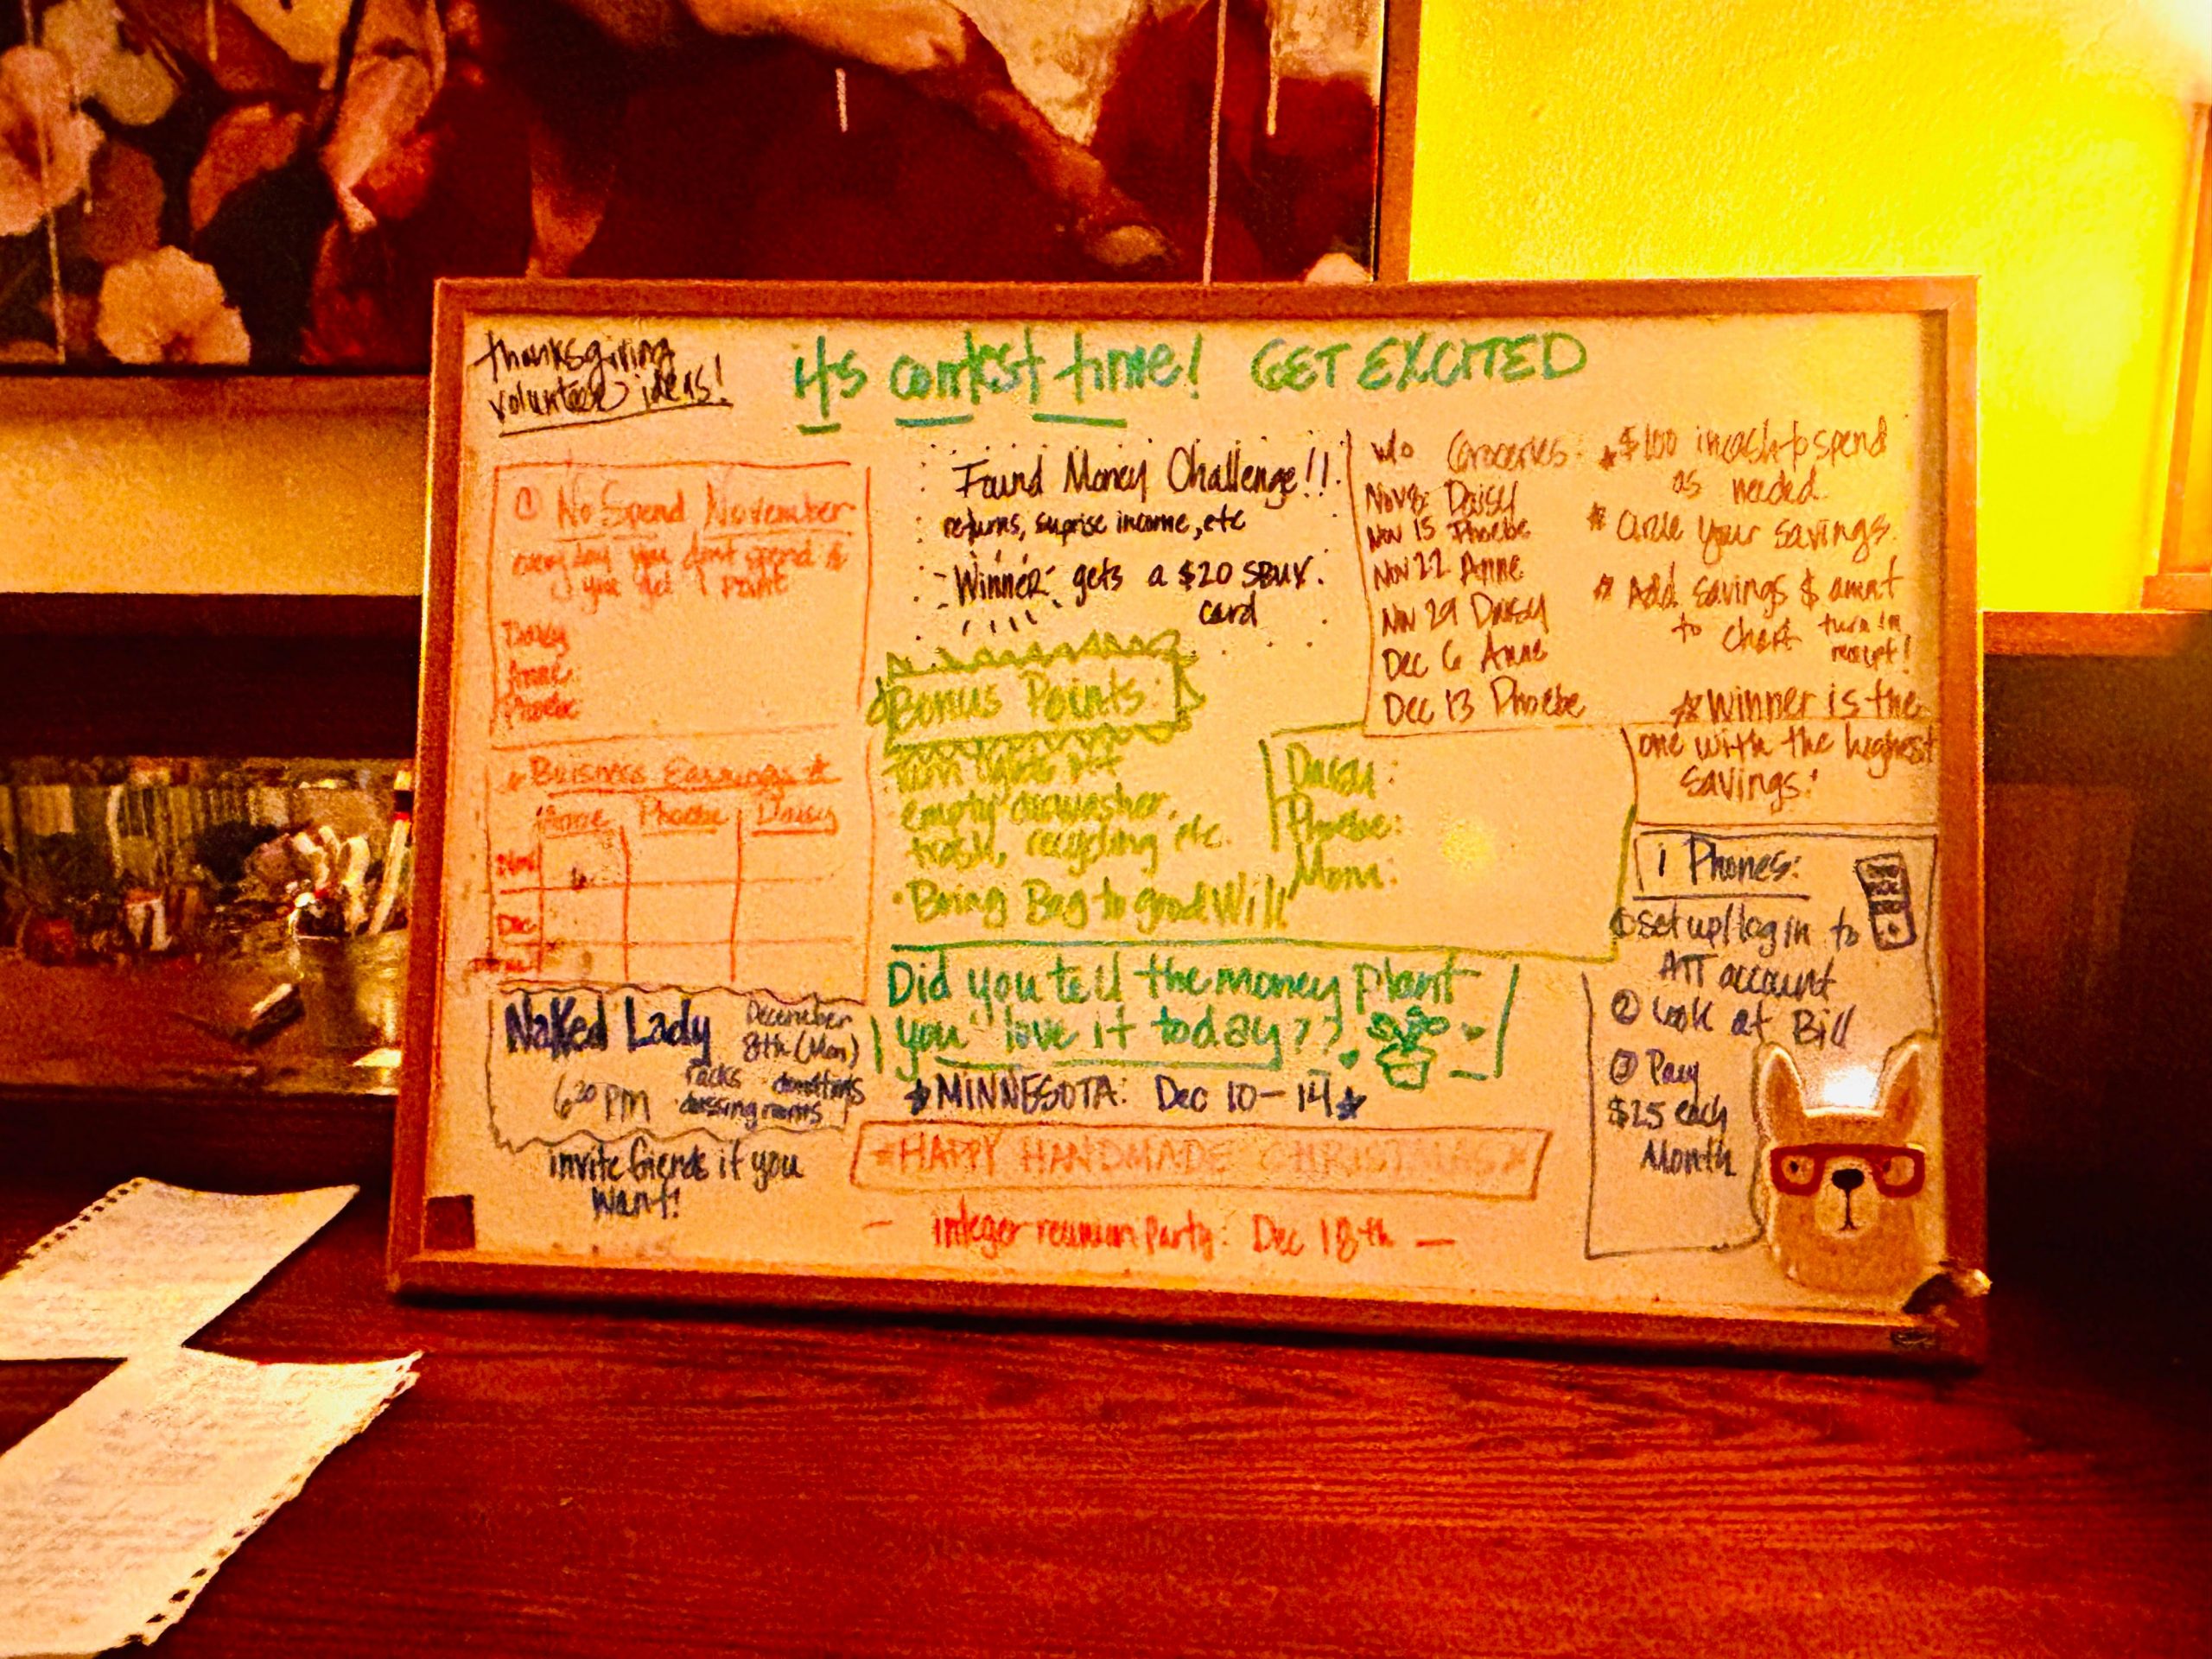 thanksgiving
volunteer ideas!
it's contest time! GET EXCITED
① No Spend November
every day you dont spend $
you get 1 point
Daisy
Anne:
Phoebe
Found Money Challenge!!
returns, suprise income, etc
Winner gets a $20 SBUX.
card
w/o Groceries:
Nov 8: Daisy
Nov 15 Phoebe
Nov 22 Anne
Nov 29 Daisy
Dec 6 Anne
Dec 13 Phoebe
$100 in cash to spend
as needed
Circle your savings.
Add savings $ amnt
to chart turn in
receipt!
Winner is the
one with the highest
savings!
Bonus Points:
Turn lights off
empty diswasher,
trash, recycling etc.
• Bring Bag to good Will
Daisy:
Phoebe:
Mom:
Business Earnings
Anne Phoebe Daisy
Nov
Dec
Did you tell the money plant
you love it today??
MINNESOTA: Dec 10-14
HAPPY HANDMADE CHRISTMAS
- integer reunion party: Dec 18th -
Naked Lady December
8th (Mon)
6³⁰ PM racks donations
dressing rooms
invite friends if you
want!
i Phones:
① set up/log in to
ATT account
② Look at Bill
③ Pay
$25 each
Month